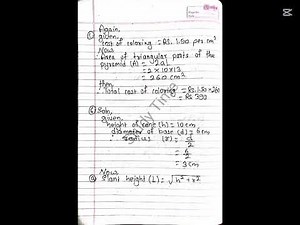 Again,
given,
Cost of coloring = RS. 1.50 per cm²
Now
Area of triangular parts of the
pyramid (A) = 2al
= 2×10×13
= 260 cm²
then,
Total cost of coloring = RS. 1.50×260
= RS 390
Soln,
given,
height of cone (h) = 10cm
diameter of base (d) = 6cm
radius (r) = d/2
= 6/2
= 3cm
Now
a) Slant height (l) = √h²+r²
Study Time